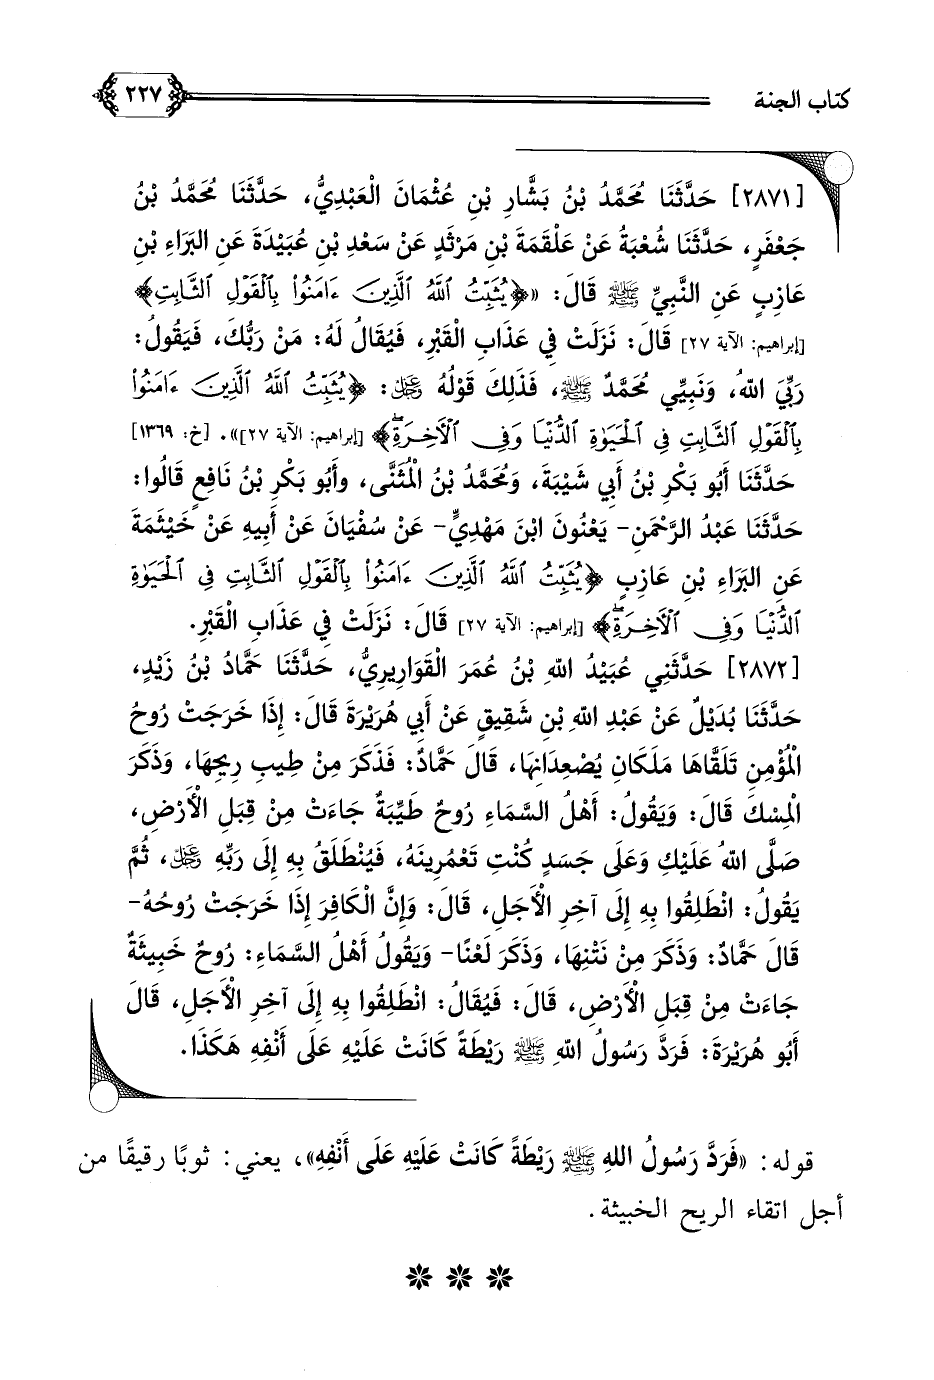 كتاب الجنة
٢٢٧
[٢٨٧١] حَدَّثَنَا مُحَمَّدُ بْنُ بَشَّارِ بْنِ عُثْمَانَ الْعَبْدِيُّ، حَدَّثَنَا مُحَمَّدُ بْنُ
جَعْفَرٍ، حَدَّثَنَا شُعْبَةُ عَنْ عَلْقَمَةَ بْنِ مَرْثَدٍ عَنْ سَعْدِ بْنِ عُبَيْدَةَ عَنِ الْبَرَاءِ بْنِ
عَازِبٍ عَنِ النَّبِيِّ ﷺ قَالَ: «﴿يُثَبِّتُ ٱللَّهُ ٱلَّذِينَ ءَامَنُوا۟ بِٱلْقَوْلِ ٱلثَّابِتِ﴾
[إبراهيم: الآية ٢٧] قَالَ: نَزَلَتْ فِي عَذَابِ الْقَبْرِ، فَيُقَالُ لَهُ: مَنْ رَبُّكَ، فَيَقُولُ:
رَبِّيَ اللهُ، وَنَبِيِّي مُحَمَّدٌ ﷺ، فَذَلِكَ قَوْلُهُ عز وجل: ﴿يُثَبِّتُ ٱللَّهُ ٱلَّذِينَ ءَامَنُوا۟
بِٱلْقَوْلِ ٱلثَّابِتِ فِى ٱلْحَيَوٰةِ ٱلدُّنْيَا وَفِى ٱلْأَخِرَةِۖ﴾ [إبراهيم: الآية ٢٧]». [خ: ١٣٦٩]
حَدَّثَنَا أَبُو بَكْرِ بْنُ أَبِي شَيْبَةَ، وَمُحَمَّدُ بْنُ الْمُثَنَّى، وأَبُو بَكْرِ بْنُ نَافِعٍ قَالُوا:
حَدَّثَنَا عَبْدُ الرَّحْمَنِ- يَعْنُونَ ابْنَ مَهْدِيٍّ- عَنْ سُفْيَانَ عَنْ أَبِيهِ عَنْ خَيْثَمَةَ
عَنِ الْبَرَاءِ بْنِ عَازِبٍ ﴿يُثَبِّتُ ٱللَّهُ ٱلَّذِينَ ءَامَنُوا۟ بِٱلْقَوْلِ ٱلثَّابِتِ فِى ٱلْحَيَوٰةِ
ٱلدُّنْيَا وَفِى ٱلْأَخِرَةِۖ﴾ [إبراهيم: الآية ٢٧] قَالَ: نَزَلَتْ فِي عَذَابِ الْقَبْرِ.
[٢٨٧٢] حَدَّثَنِي عُبَيْدُ اللهِ بْنُ عُمَرَ الْقَوَارِيرِيُّ، حَدَّثَنَا حَمَّادُ بْنُ زَيْدٍ،
حَدَّثَنَا بُدَيْلٌ عَنْ عَبْدِ اللهِ بْنِ شَقِيقٍ عَنْ أَبِي هُرَيْرَةَ قَالَ: إِذَا خَرَجَتْ رُوحُ
الْمُؤْمِنِ تَلَقَّاهَا مَلَكَانِ يُصْعِدَانِهَا، قَالَ حَمَّادٌ: فَذَكَرَ مِنْ طِيبِ رِيحِهَا، وَذَكَرَ
الْمِسْكَ قَالَ: وَيَقُولُ: أَهْلُ السَّمَاءِ رُوحٌ طَيِّبَةٌ جَاءَتْ مِنْ قِبَلِ الْأَرْضِ،
صَلَّى اللهُ عَلَيْكِ وَعَلَى جَسَدٍ كُنْتِ تَعْمُرِينَهُ، فَيُنْطَلَقُ بِهِ إِلَى رَبِّهِ عز وجل، ثُمَّ
يَقُولُ: انْطَلِقُوا بِهِ إِلَى آخِرِ الْأَجَلِ، قَالَ: وَإِنَّ الْكَافِرَ إِذَا خَرَجَتْ رُوحُهُ-
قَالَ حَمَّادٌ: وَذَكَرَ مِنْ نَتْنِهَا، وَذَكَرَ لَعْنًا- وَيَقُولُ أَهْلُ السَّمَاءِ: رُوحٌ خَبِيثَةٌ
جَاءَتْ مِنْ قِبَلِ الْأَرْضِ، قَالَ: فَيُقَالُ: انْطَلِقُوا بِهِ إِلَى آخِرِ الْأَجَلِ، قَالَ
أَبُو هُرَيْرَةَ: فَرَدَّ رَسُولُ اللهِ ﷺ رَيْطَةً كَانَتْ عَلَيْهِ عَلَى أَنْفِهِ هَكَذَا.
قوله: «فَرَدَّ رَسُولُ اللهِ ﷺ رَيْطَةً كَانَتْ عَلَيْهِ عَلَى أَنْفِهِ»، يعني: ثوبًا رقيقًا من
أجل اتقاء الريح الخبيثة.